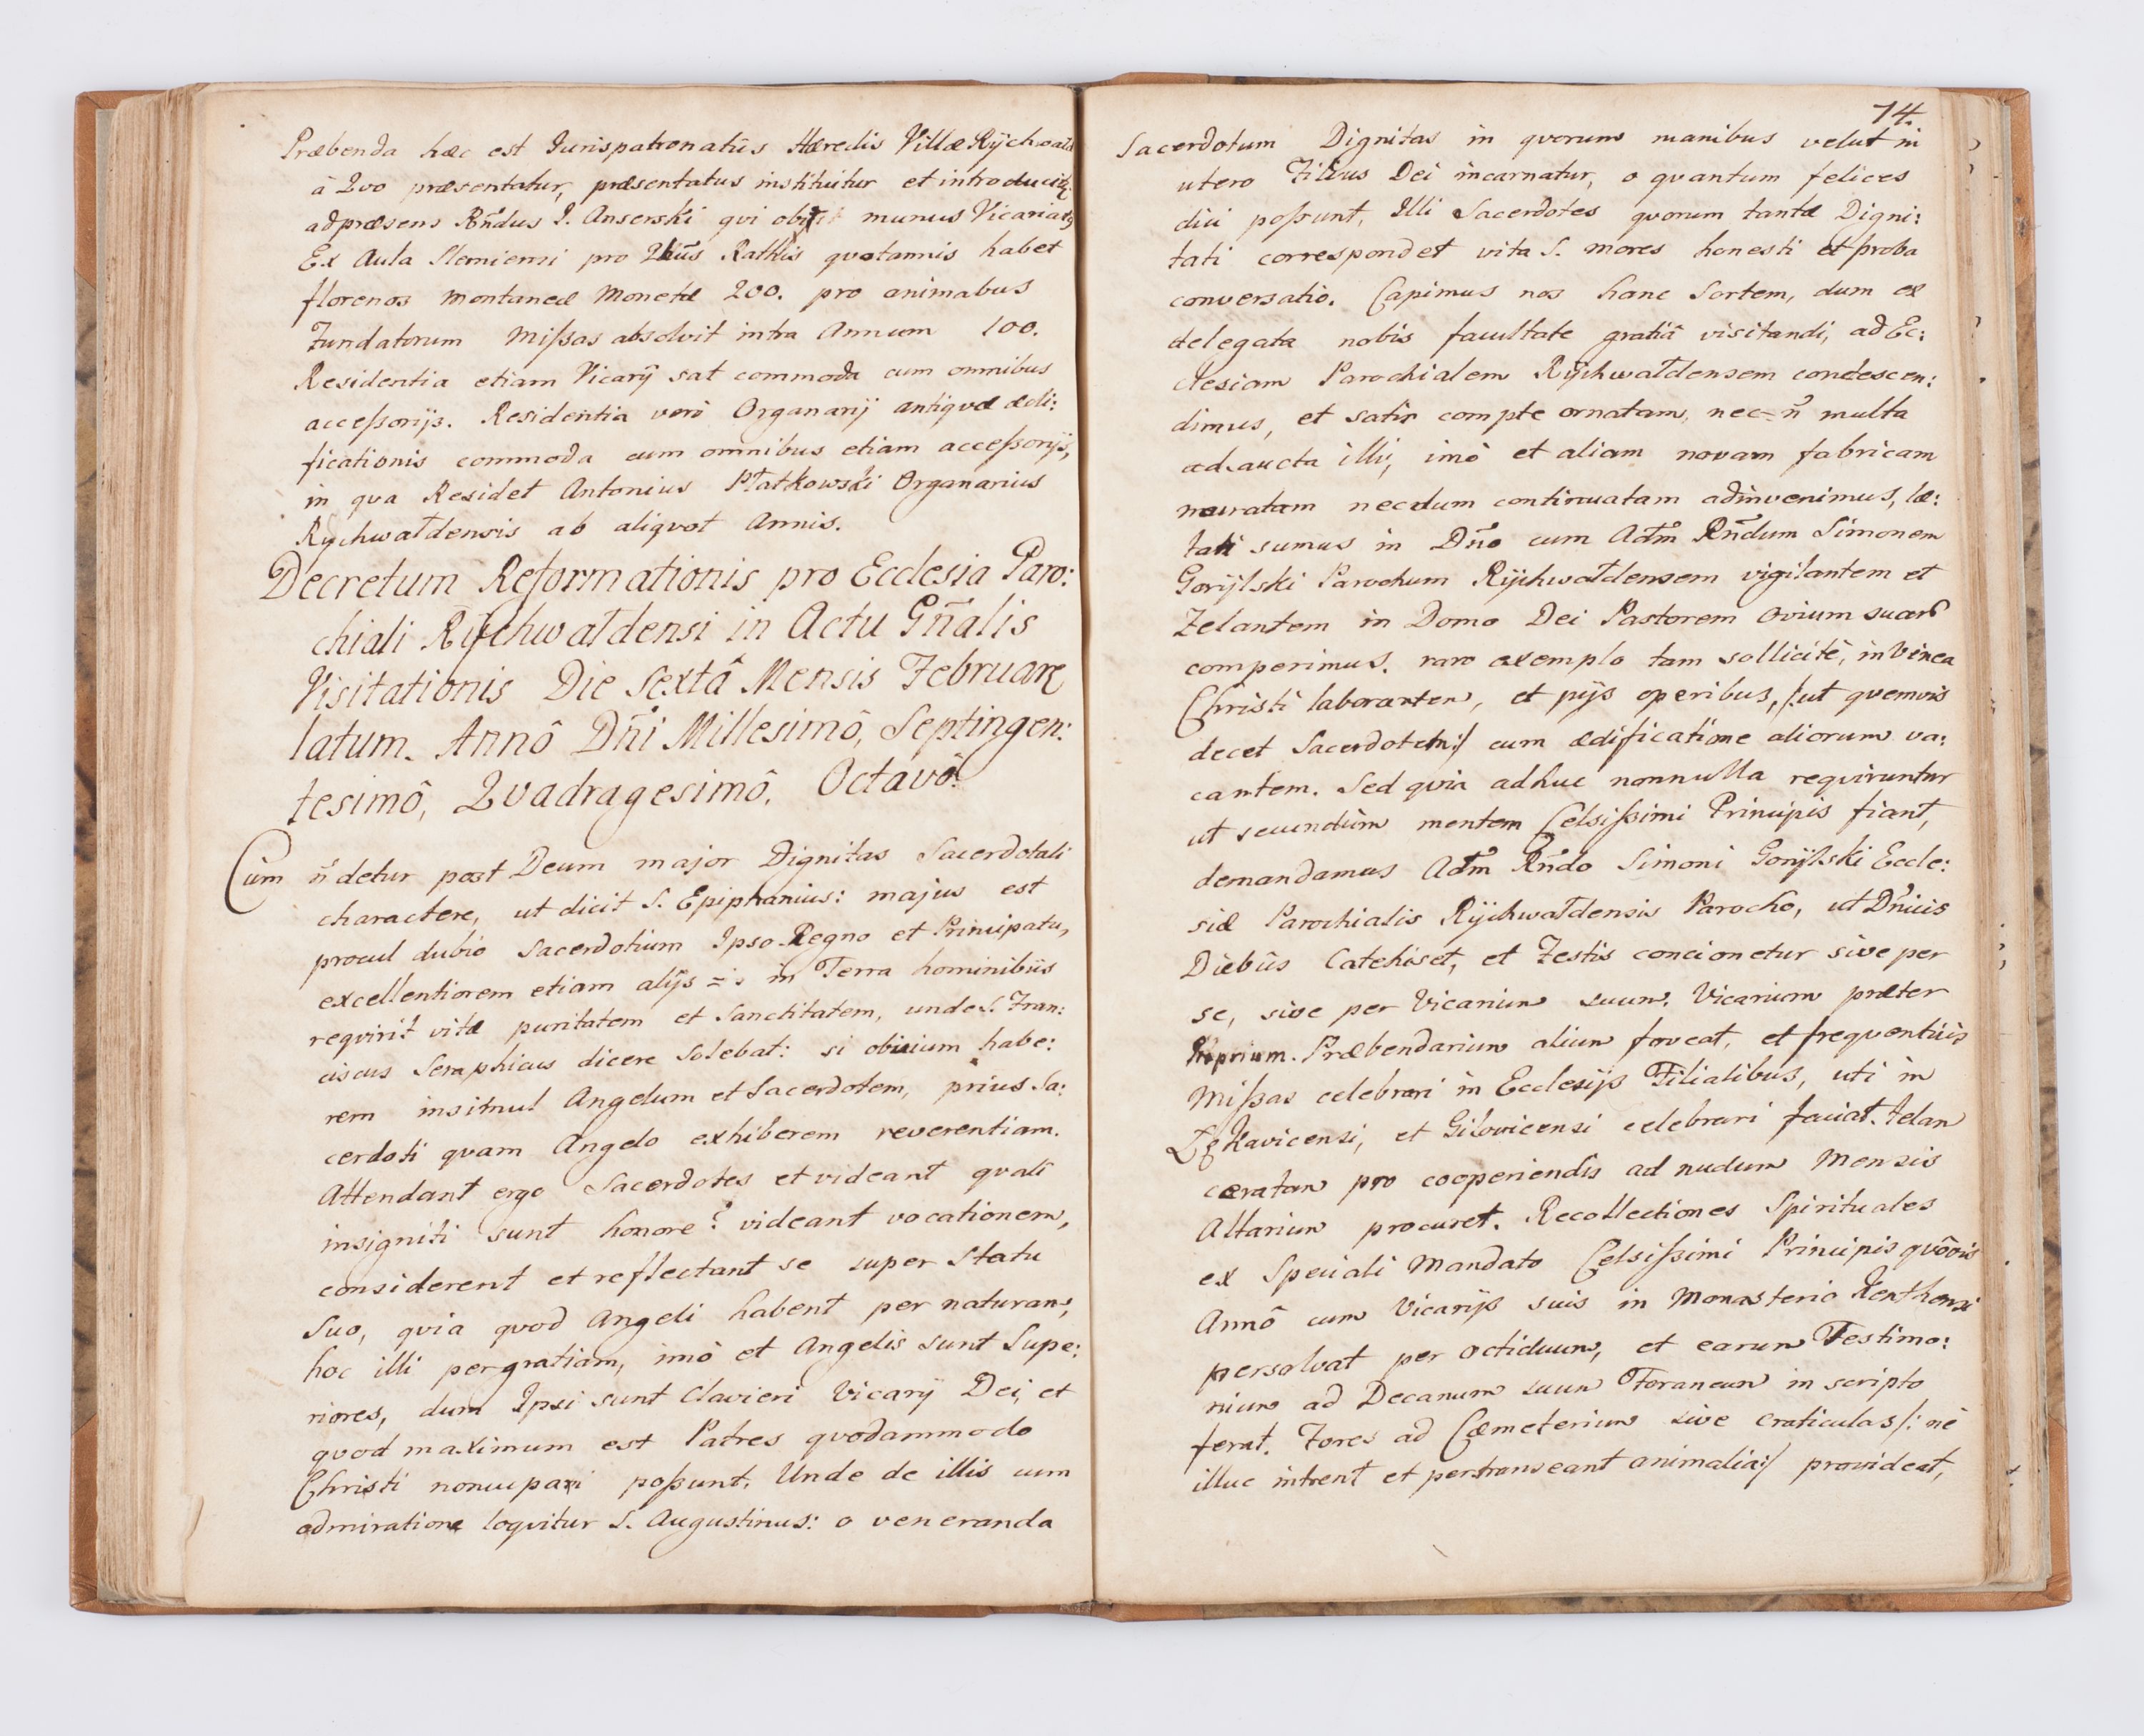 Præbenda hæc est Jurispatronatûs Hæredis Villæ Rÿchwałd
à Quo præsentatur, præsentatus instituitur et introducitur
ad præsens Rñdus J. Anserski qui obijt munus Vicariatus
Ex Aula Slemiensi pro Rathis quotannis habet
florenos Montanæ Monetæ 200. pro animabus
Fundatorum Mißas absolvit intra Annum 100.
Residentia etiam Vicarÿ sat commoda cum omnibus
acceßorijs. Residentia verò Organarÿ antiquæ ædi:
ficationis commoda cum omnibus etiam acceßorijs,
in qva Residet Antonius Płatkowski Organarius
Rychwałdensis ab aliqvot Annis.
Decretum Reformationis pro Ecclesia Paro:
chiali Rÿchwałdensi in Actu Gñalis
Visitationis Die Sextâ Mensis Februarij
latum. Annô Dñi Millesimô, Septingen:
tesimô, Qvadragesimô, Octavô.
Cùm ñ detur post Deum major Dignitas Sacerdotali
charactere, ut dicit S. Epiphanius: majus est
procul dubio Sacerdotium Ipso Regno et Principatu,
excellentiorem etiam alÿs in Terra hominibûs
reqvirit vitæ puritatem et Sanctitatem, unde S. Fran:
ciscus Seraphicus dicere Solebat: si obvium habe:
rem insimul Angelum et Sacerdotem, priùs Sa:
cerdoti qvam Angelo exhiberem reverentiam.
Attendant ergo Sacerdotes et videant qvali
insigniti sunt honore? videant vocationem,
considerent et reflectant se super Statu
Suo, qvia qvod Angeli habent per naturam,
hoc illi per gratiam, imò et Angelis sunt Supe:
riores, dum Ipsi sunt Clavieri Vicarÿ Dei, et
qvod maximum est Patres qvodammodo
Christi noncupari poßunt. Unde de illis cum
admiratione loqvitur S. Augustinus: o veneranda
74.
Sacerdotum Dignitas in qvorum manibus velut in
utero Filius Dei incarnatur, o qvantum felices
dici poßunt, Illi Sacerdotes qvorum tantæ Digni:
tati correspondet vita S. mores honesti et proba
conversatio. Capimus nos hanc Sortem, dum ex
delegata nobis facultate gratiâ visitandi, ad Ec:
clesiam Parochialem Rÿchwałdensem condescen:
dimus, et satis compte ornatam, nec=ñ multa
adaucta illi, imò et aliam novam fabricam
muratam necdum continuatam adinvenimus, læ:
tati sumus in Dño cum Adm̃ Rñdum Simonem
Gorÿlski Parochum Rÿchwałdensem vigilantem et
Zelantem in Domo Dei Pastorem Ovium suarum
comperimus. raro exemplo tam sollicitè, in Vinea
Christi laborantem, et pijs operibus, /:ut qvemvis
decet Sacerdotem:/ cum ædificatione aliorum va:
cantem. Sed qvia adhuc nonnulla reqviruntur
ut secundùm mentem Celsißimi Principis fiant,
demandamus Adm̃ Rñdo Simoni Gorÿlski Eccle:
siæ Parochialis Rÿchwałdensis Parocho, ut Dñicis
Diebûs Catehiset, et Festis concionetur sive per
se, sive per Vicarium suum. Vicarium præter
Præbendarium alium foveat, et freqventiùs
Mißas celebrari in Ecclesÿs Filialibus, uti in
Lękavicensi, et Gilovicensi celebrari faciat. telam
ceratam pro cooperiendis ad nudum Mensis
Altarium procuret. Recollectiones Spirituales
ex Speciali Mandato Celsißimi Principis qvõvis
Annô cum Vicarijs suis in Monasterio Kenthensi
persolvat per octiduum, et earum Testimo:
nium ad Decanum suum Foraneum in scripto
ferat. Fores ad Cæmeterium sive craticulas /: nè
illuc intrent et pertranseant animalia:/ provideat,